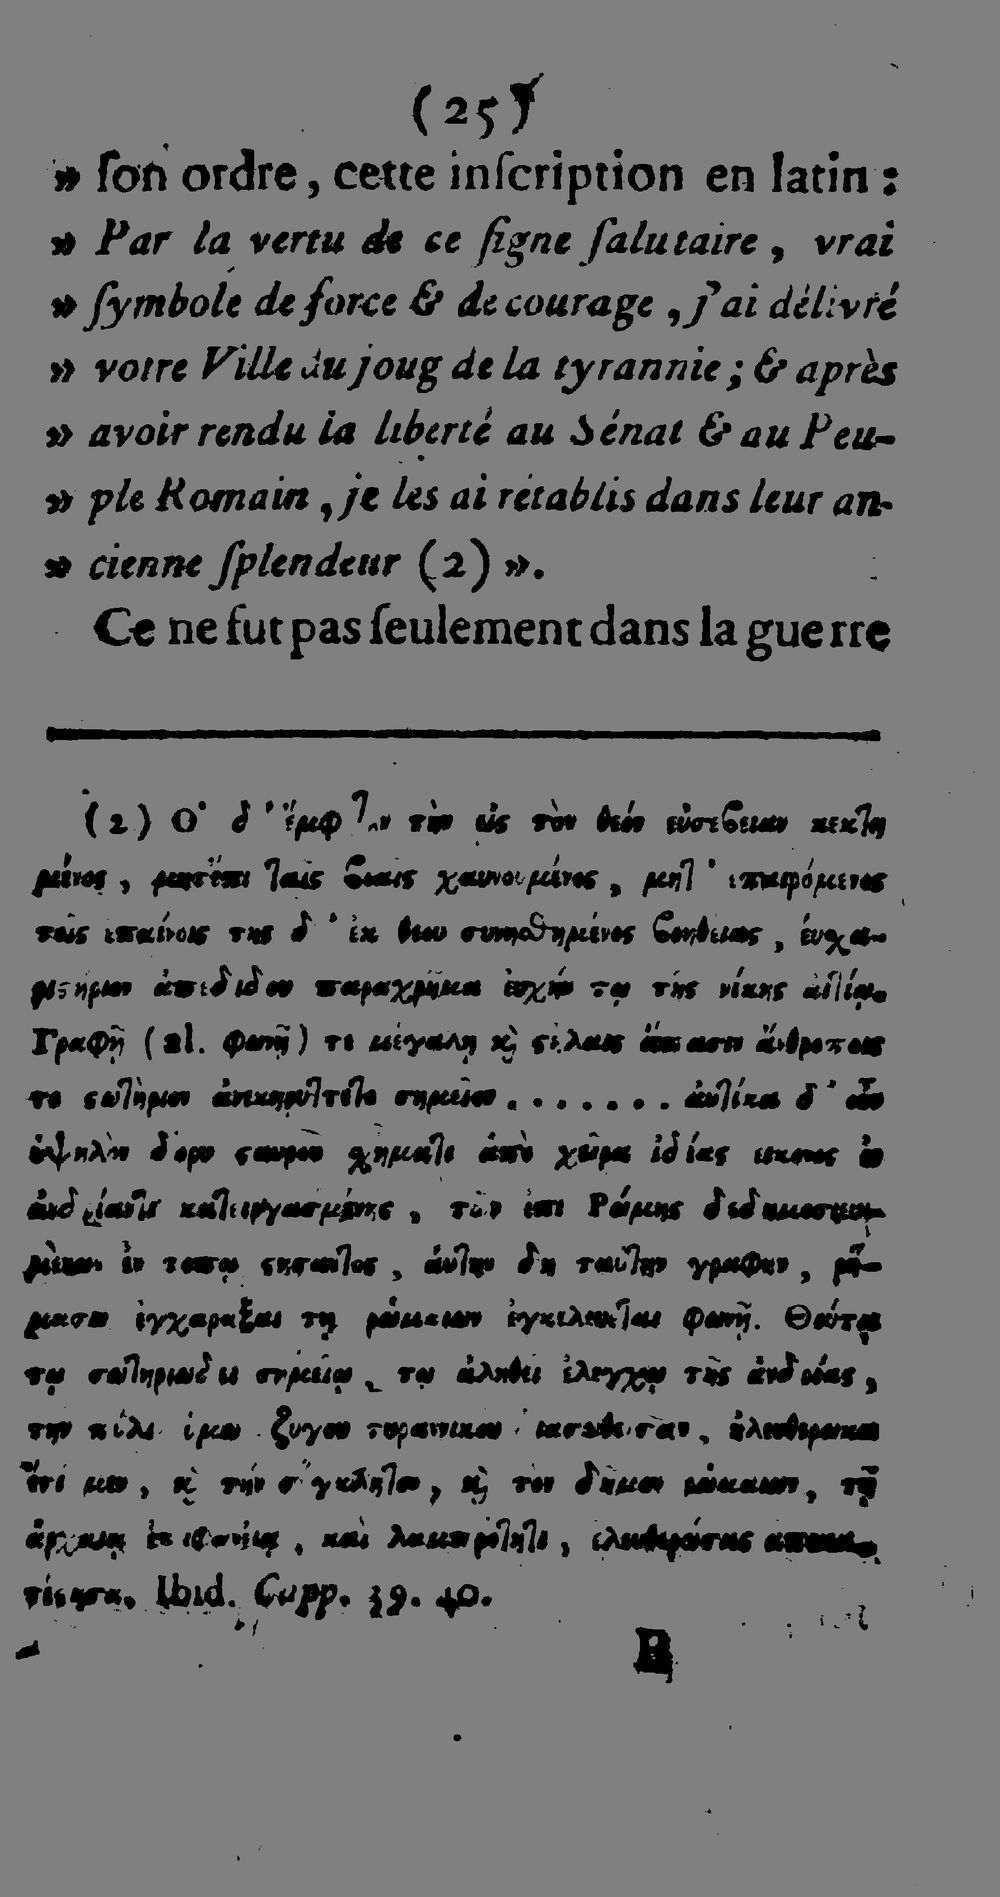 (25)
» ſon ordre, cette inſcription en latin :
» Par la vertu de ce ſigne ſalutaire, vrai
» ſymbole de force & de courage, j'ai délivré
» votre Ville du joug de la tyrannie; & après
» avoir rendu la liberté au Sénat & au Peu-
» ple Romain, je les ai rétablis dans leur an-
» cienne ſplendeur (2) ».
Ce ne fut pas ſeulement dans la guerre
(2) Ο' δ' ἔμφ τὴν εἰς τὸν θεόν εὐσεϐειαν κεκτη
μένος, ϐοαις χαυνουμένος, μητ' επαιρόμενος
τοῖς επαίνοις της δ' ἐκ θεου ϐοηθειας, ἐυχα-
ριςηριον ἀπεδιδου παραχρῆμα ἐυχήν τῳ τῆς νίκης αἰτίῳ.
Γραφῇ (al. φωνῇ) τε μεγαλῃ κ̀ ςήλαις ἅπασιν ἄνθροποις
το σωτὴριον ἀνεκηρυττετο σημεῖον....... ἀυτίκα δ' οὖν
ὑψηλὸν δόρυ ςαυροῦ χηματι ἀπὸ χεῖρα ἰδίας εικονος ἐν
ἀνδριάντι κατειργασμένης, τῶν ἐπι Ρώμης δεδημοσιευ-
μένων ἐν τοπῳ ςησαντος, ἀύτην δη ταύτην γραφην, ῥή-
μασιν ἐγχαραξαι τῃ ῥώμαιων ἐγκελευεται φωνῇ. Θούτῳ
τῳ σωτηριωδει σημείῳ, τῳ ἀληθει ἐλεγχῳ τῆς ἀνδρίας,
την πόλιν ζυγου τυραννικου ἠλευθερωκα
ἔτι μεν, κ̀ τήν σύγκλητον, κ̀ τον δῆμον ῥώμαιων, τῇ
ἀρχαιᾳ επιφανείᾳ, και λαμπρότητι, ελευθερώσας αποκα-
τέςησα. Ibid. Capp. 39. 40.
B